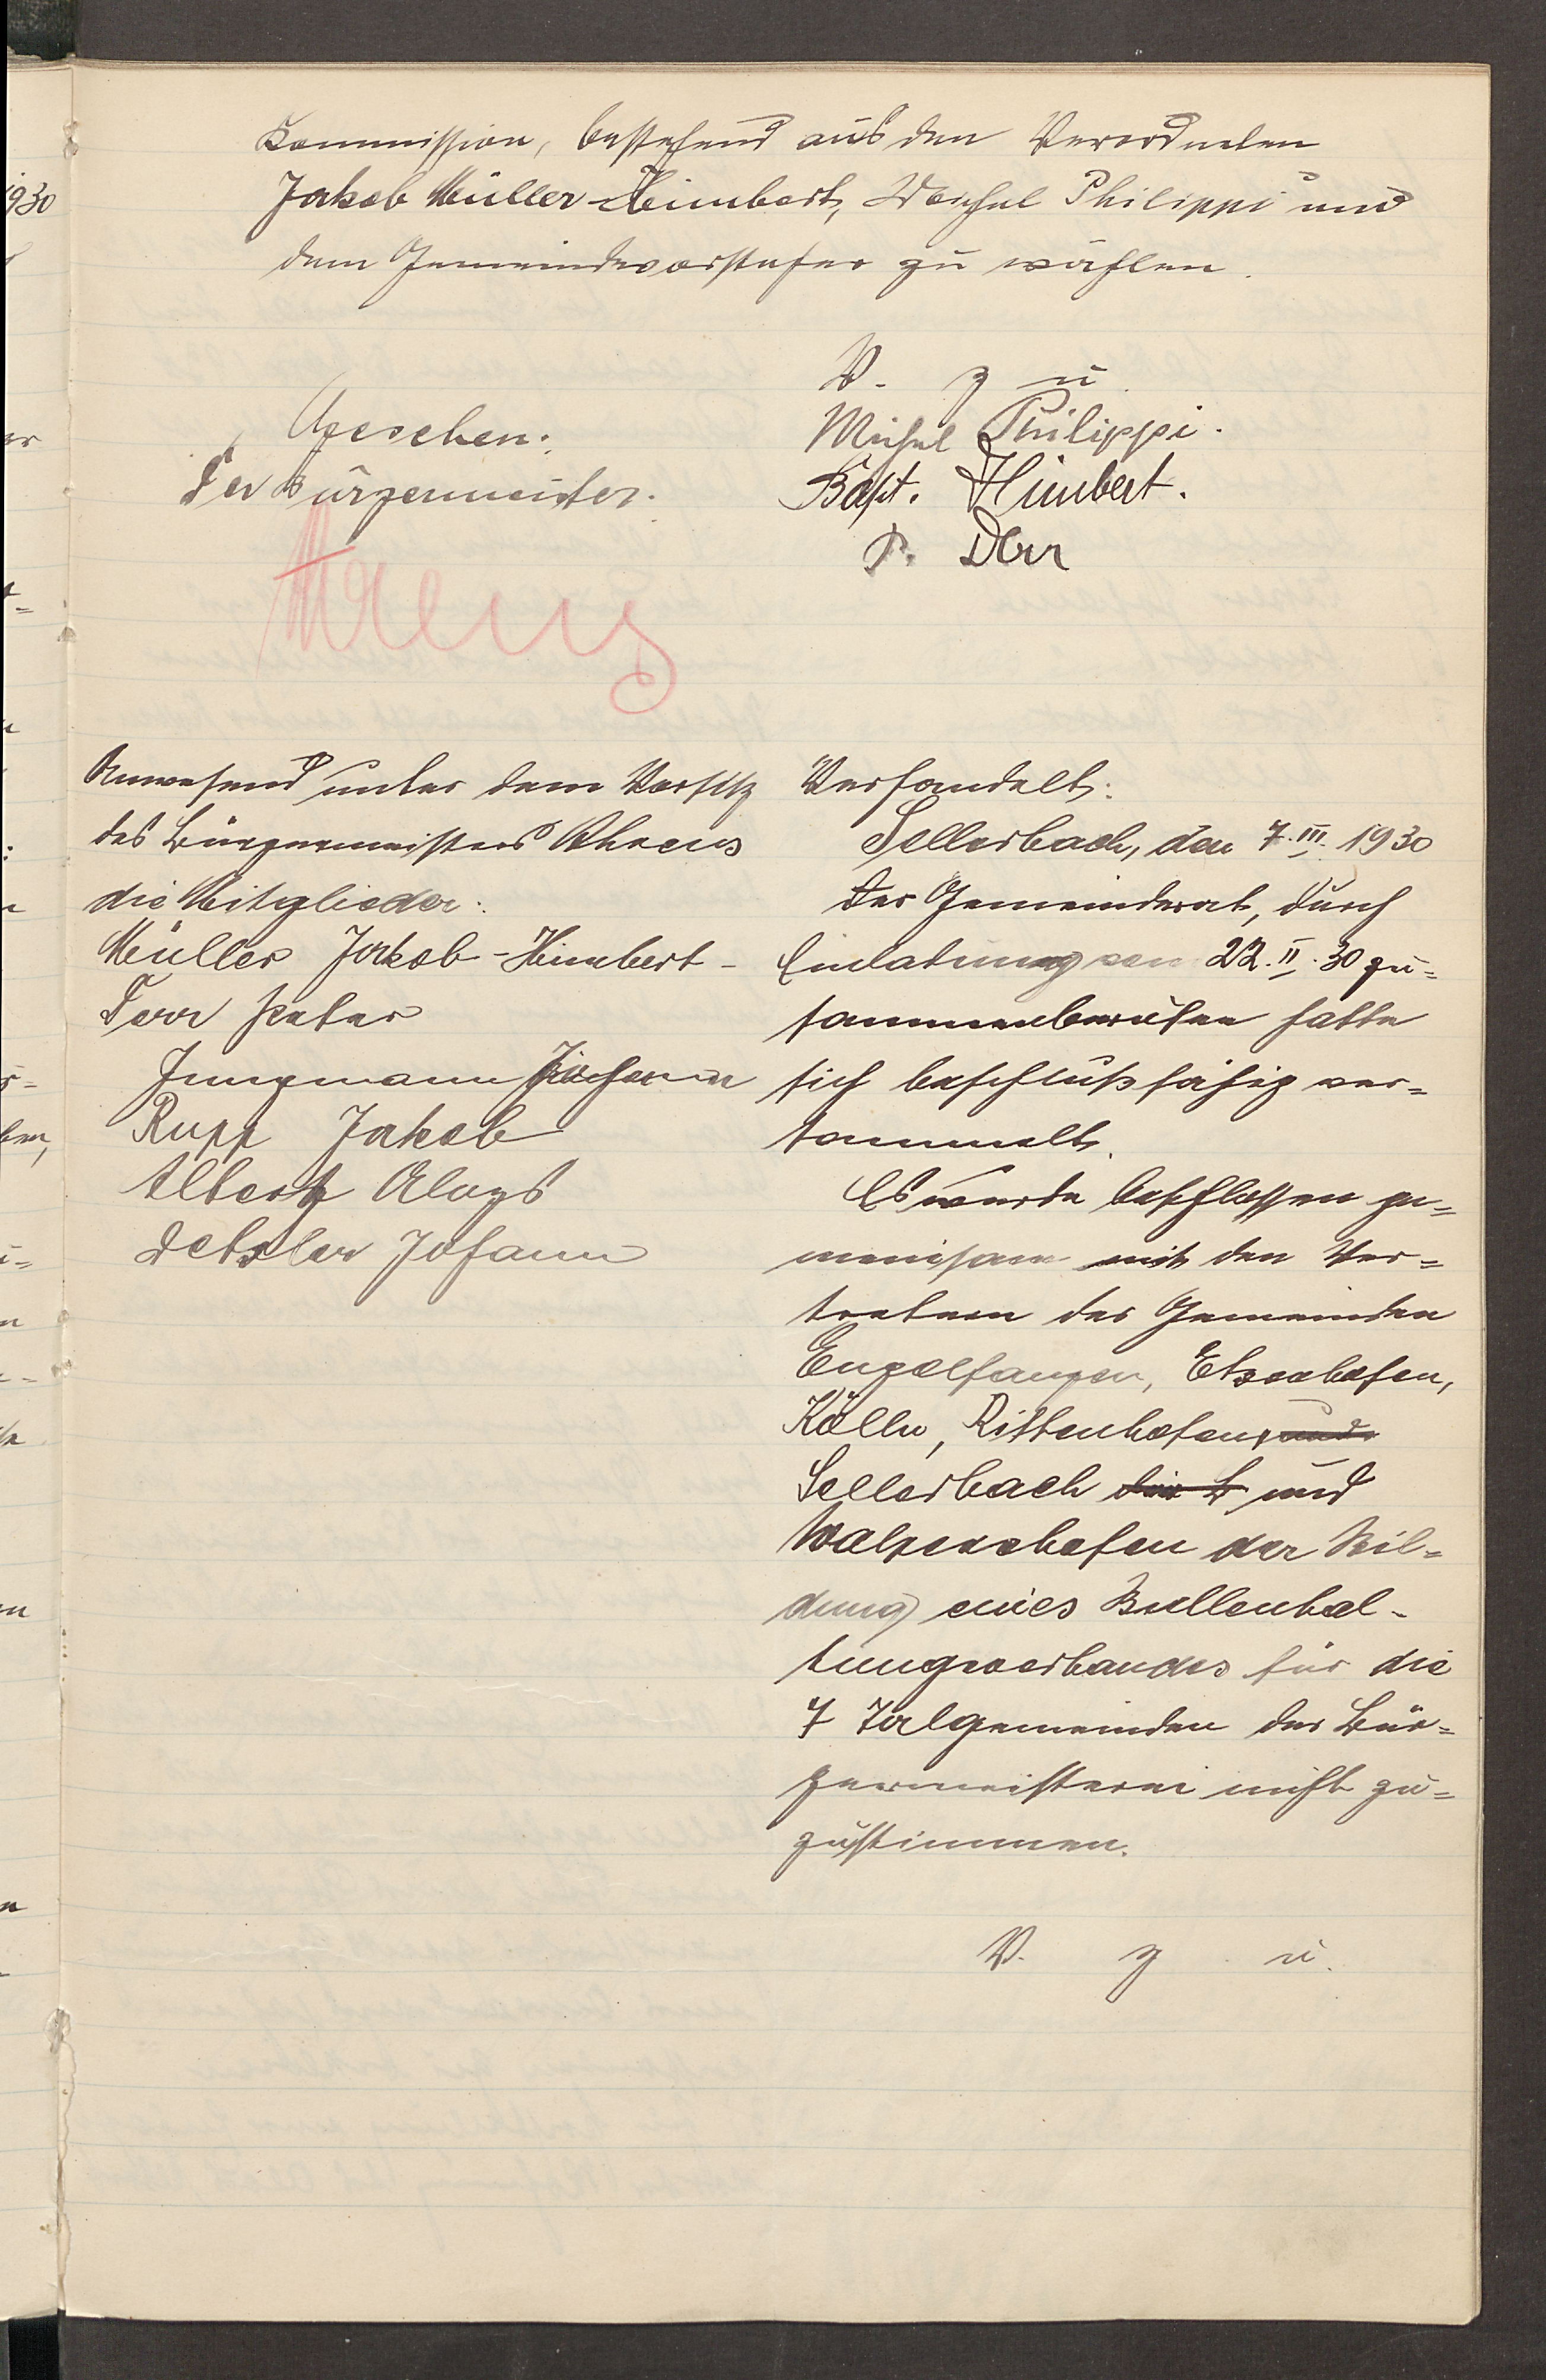 Kommission, bestehend aus den Verordneten
Jakob Müller-Himbert, Michel Philippi und
dem Gemeindevorsteher zu wählen.
V. g u
Michel Philippi.
Bapt. Himbert.
P. Dörr
Gesehen:
Der Bürgermeister.
Ahrens
Anwesend unter dem Vorsitz
des Bürgermeisters Ahrens
die Mitglieder:
Müller Jakob-Himbert-
Dörr Peter
Jungmann Johann
Rupp Jakob
Albertz Aloys
Detzler Johann
Verhandelt:
Sellerbach, den 7.III.1930
Der Gemeinderat, durch
Einladung vom 22.II.30 zu=
sammenberufen hatte
sich beschlußfähig ver=
sammelt.
Es wurde beschlossen ge=
meinsam mit den Ver=
tretern der Gemeinden
Engelfangen, Etzenhofen,
Kölln, Rittenhofen, und
Sellerbach und
Walpershofen der Bil=
dung eines Bullenhal-
tungsverbandes für die
7 Talgemeinden der Bür=
germeisterei nicht zu=
zustimmen.
V. g. u.